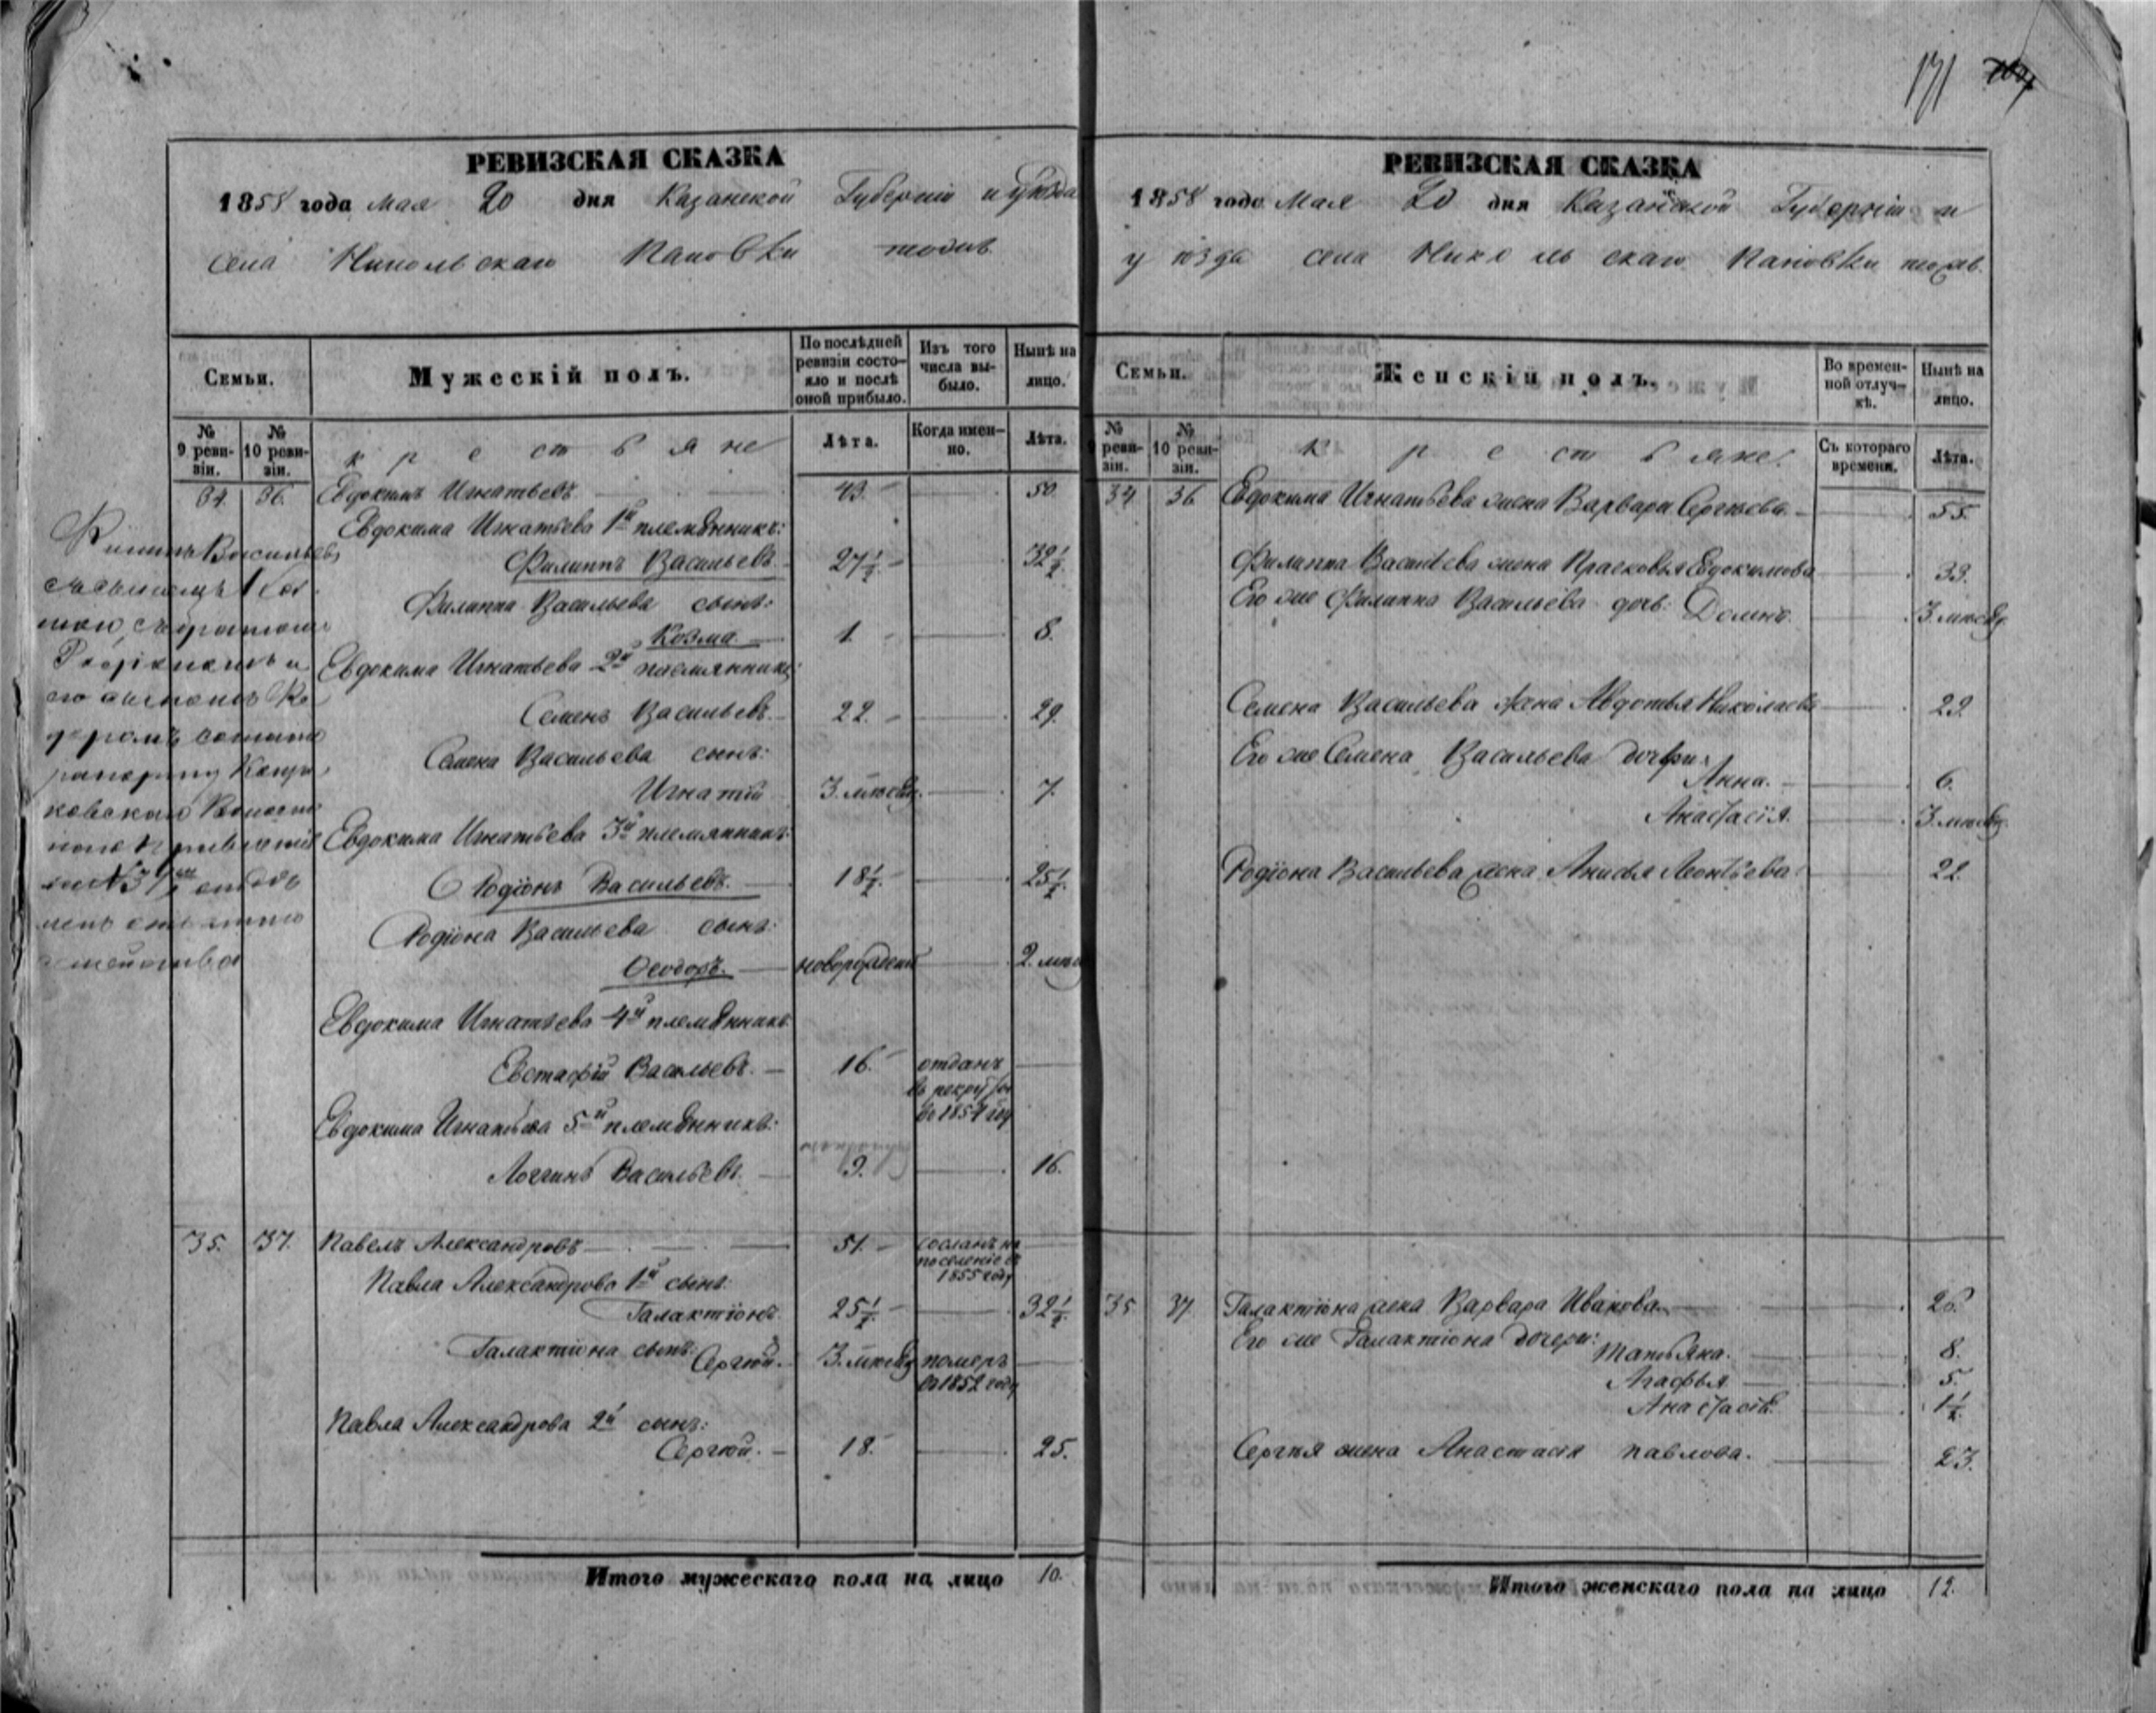 171
РЕВИЗСКАЯ СКАЗКА
1858 года Мая 20 дня Казанской Губернiи и уѣзда
села Никольскаго тожъ
Семьи.
Мужескiй полъ.
По послѣдней ревизiи состо-
яло и послѣ оной прибыло.
Изъ того числа вы-
было.
Нынѣ на лицо.
№ 9 реви-
зiи.
№ 10 реви-
зiи.
крестьяне
Лѣта.
Когда имен-
но.
Лѣта.
34. 36. Евдокимъ Игнатьевъ 43. 50
Евдокима Игнатьева 1й племянникъ:
Филиппъ Васильевъ 27½. 32½.
Филиппа Васильева сынъ:
Козма 1. 8.
Евдокима Игнатьева 2й племянникъ:
Семенъ Васильевъ 22. 29.
Семена Васильева сынъ:
Игнатiй 3. мѣсяц. 7.
Евдокима Игнатьева 3й племянникъ:
Родiонъ Васильевъ. 18½. 25½.
Родiона Васильева сынъ:
Ѳеодоръ. новорожденъ 2. мѣс
Евдокима Игнатьева 4й племянникъ
Евстафiй Васильевъ. 16. отданъ
въ рекруты
въ 1854 год
Евдокима Игнатьева 5й племянникъ:
Логгинъ Васильевъ. 9. 16.
35. 37. Павелъ Александровъ 51. сосланъ на
поселенiе въ
1855 году
Павла Александрова 1й сынъ:
Галактiонъ 25½ 32½.
Галактiона сынъ: Сергѣй. 3. мѣсяц померъ
въ 1852 году
Павла Александрова 2й сынъ:
Сергѣй. 18. 25.
Итого мужескаго пола на лицо 10.
Филиппъ Васильевъ
съ сыномъ
съ братомъ
Родiономъ и
его сыномъ
семейства
РЕВИЗСКАЯ СКАЗКА
1858 года Мая 20 дня Казанской Губернiи и
уѣзда села Никольскаго тожъ.
Семьи.
Женскiй полъ.
Во времен-
ной отлуч-
кѣ.
Нынѣ на лицо.
№ 9 реви-
зiи.
№ 10 реви-
зiи.
крестьяне.
Съ котораго времени.
Лѣта.
34 36 Евдокима Игнатьева жена Варвара Сергѣева. 55.
Филиппа Васильева жена Прасковья Евдокимова 33.
Его же Филиппа Васильева дочь: Домна. 3. мѣсяц.
Семена Васильева жена Авдотья Николаева 29.
Его же Семена Васильева дочери:
Анна. 6.
Анастасiя. 3. мѣсяц.
Родiона Васильева жена Анисья Леонтьева. 22.
35 37. Галактiона жена Варвара Иванова. 26.
Его же Галактiона дочери: Татьяна. 8.
Агафья 5.
Анастасiя. 1½.
Сергѣя жена Анастасiя Павлова. 23.
Итого женскаго пола на лицо 12.